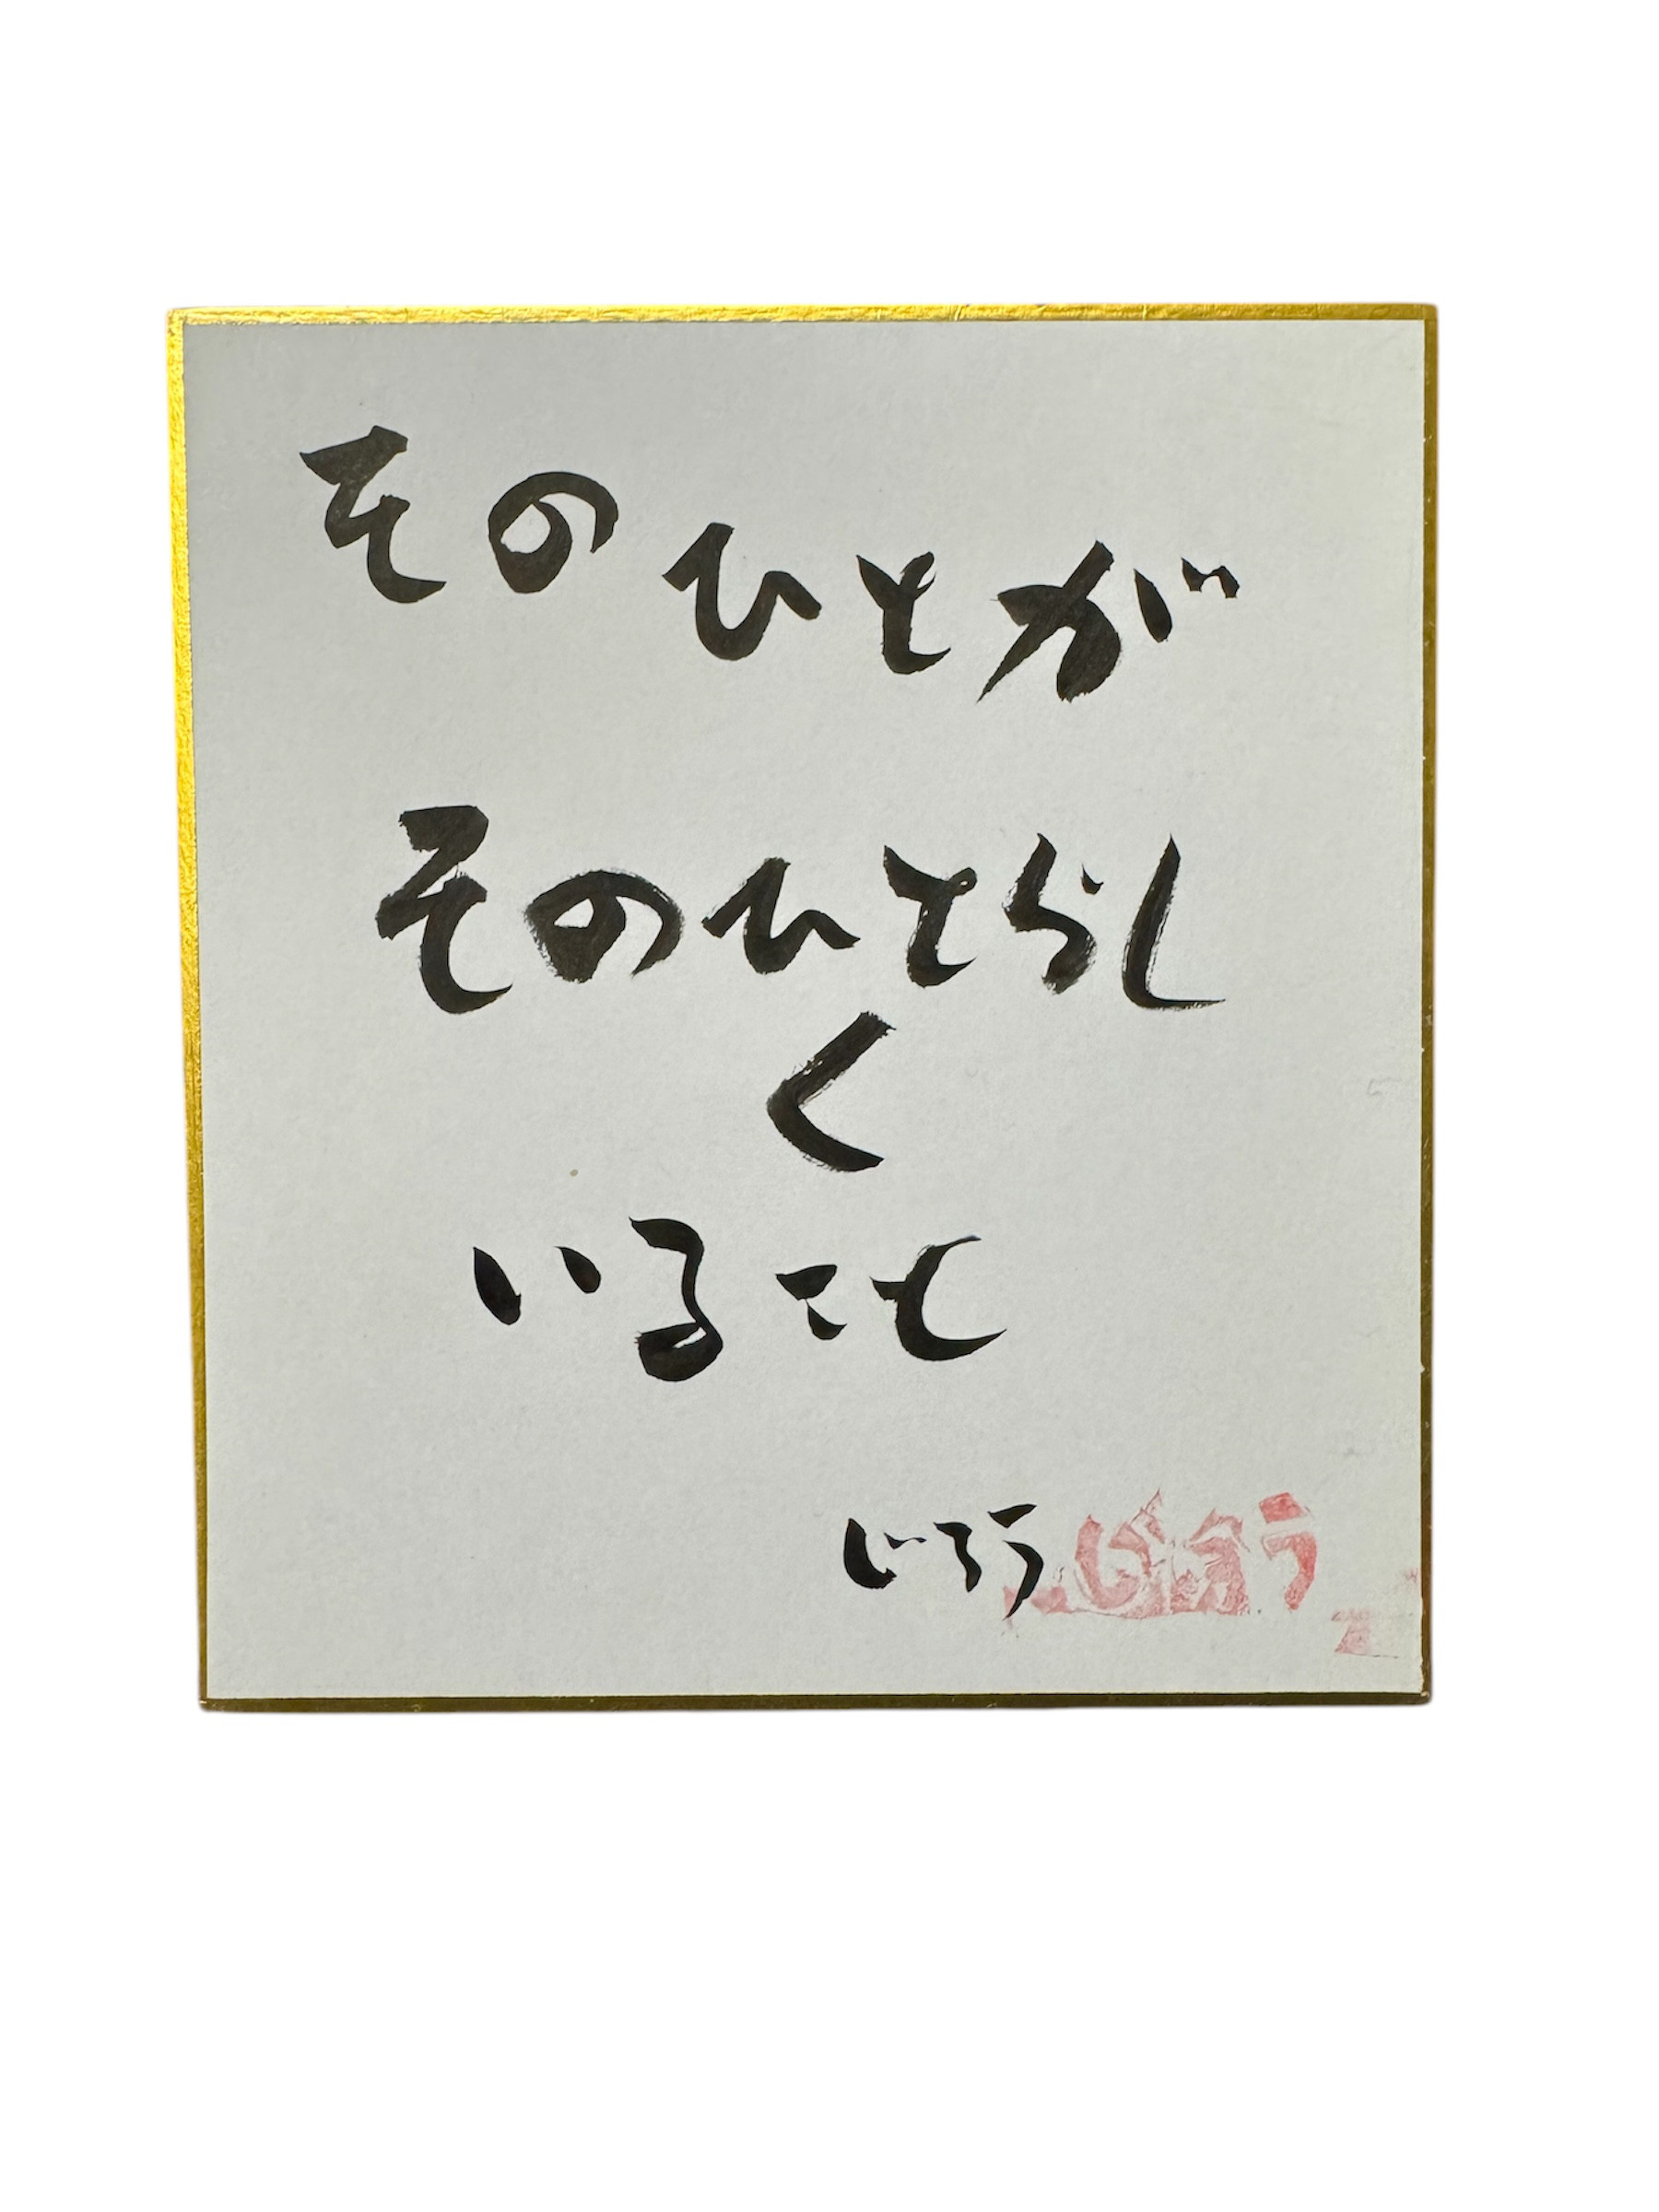 そのひとが
そのひとらし
く
いること
じろう じろう